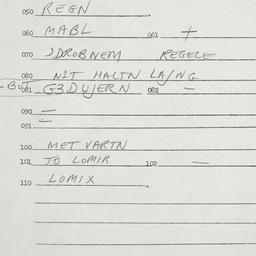 050 REGN
060 MABL 061 +
070 JDROBNEM REGELE
080 NIT HALTN LA/NG
-BUT 081 G3DUJERN 082 -
090 =
091 =
100 MET VARTN
101 TO LOMIR 102 -
110 LOMIX